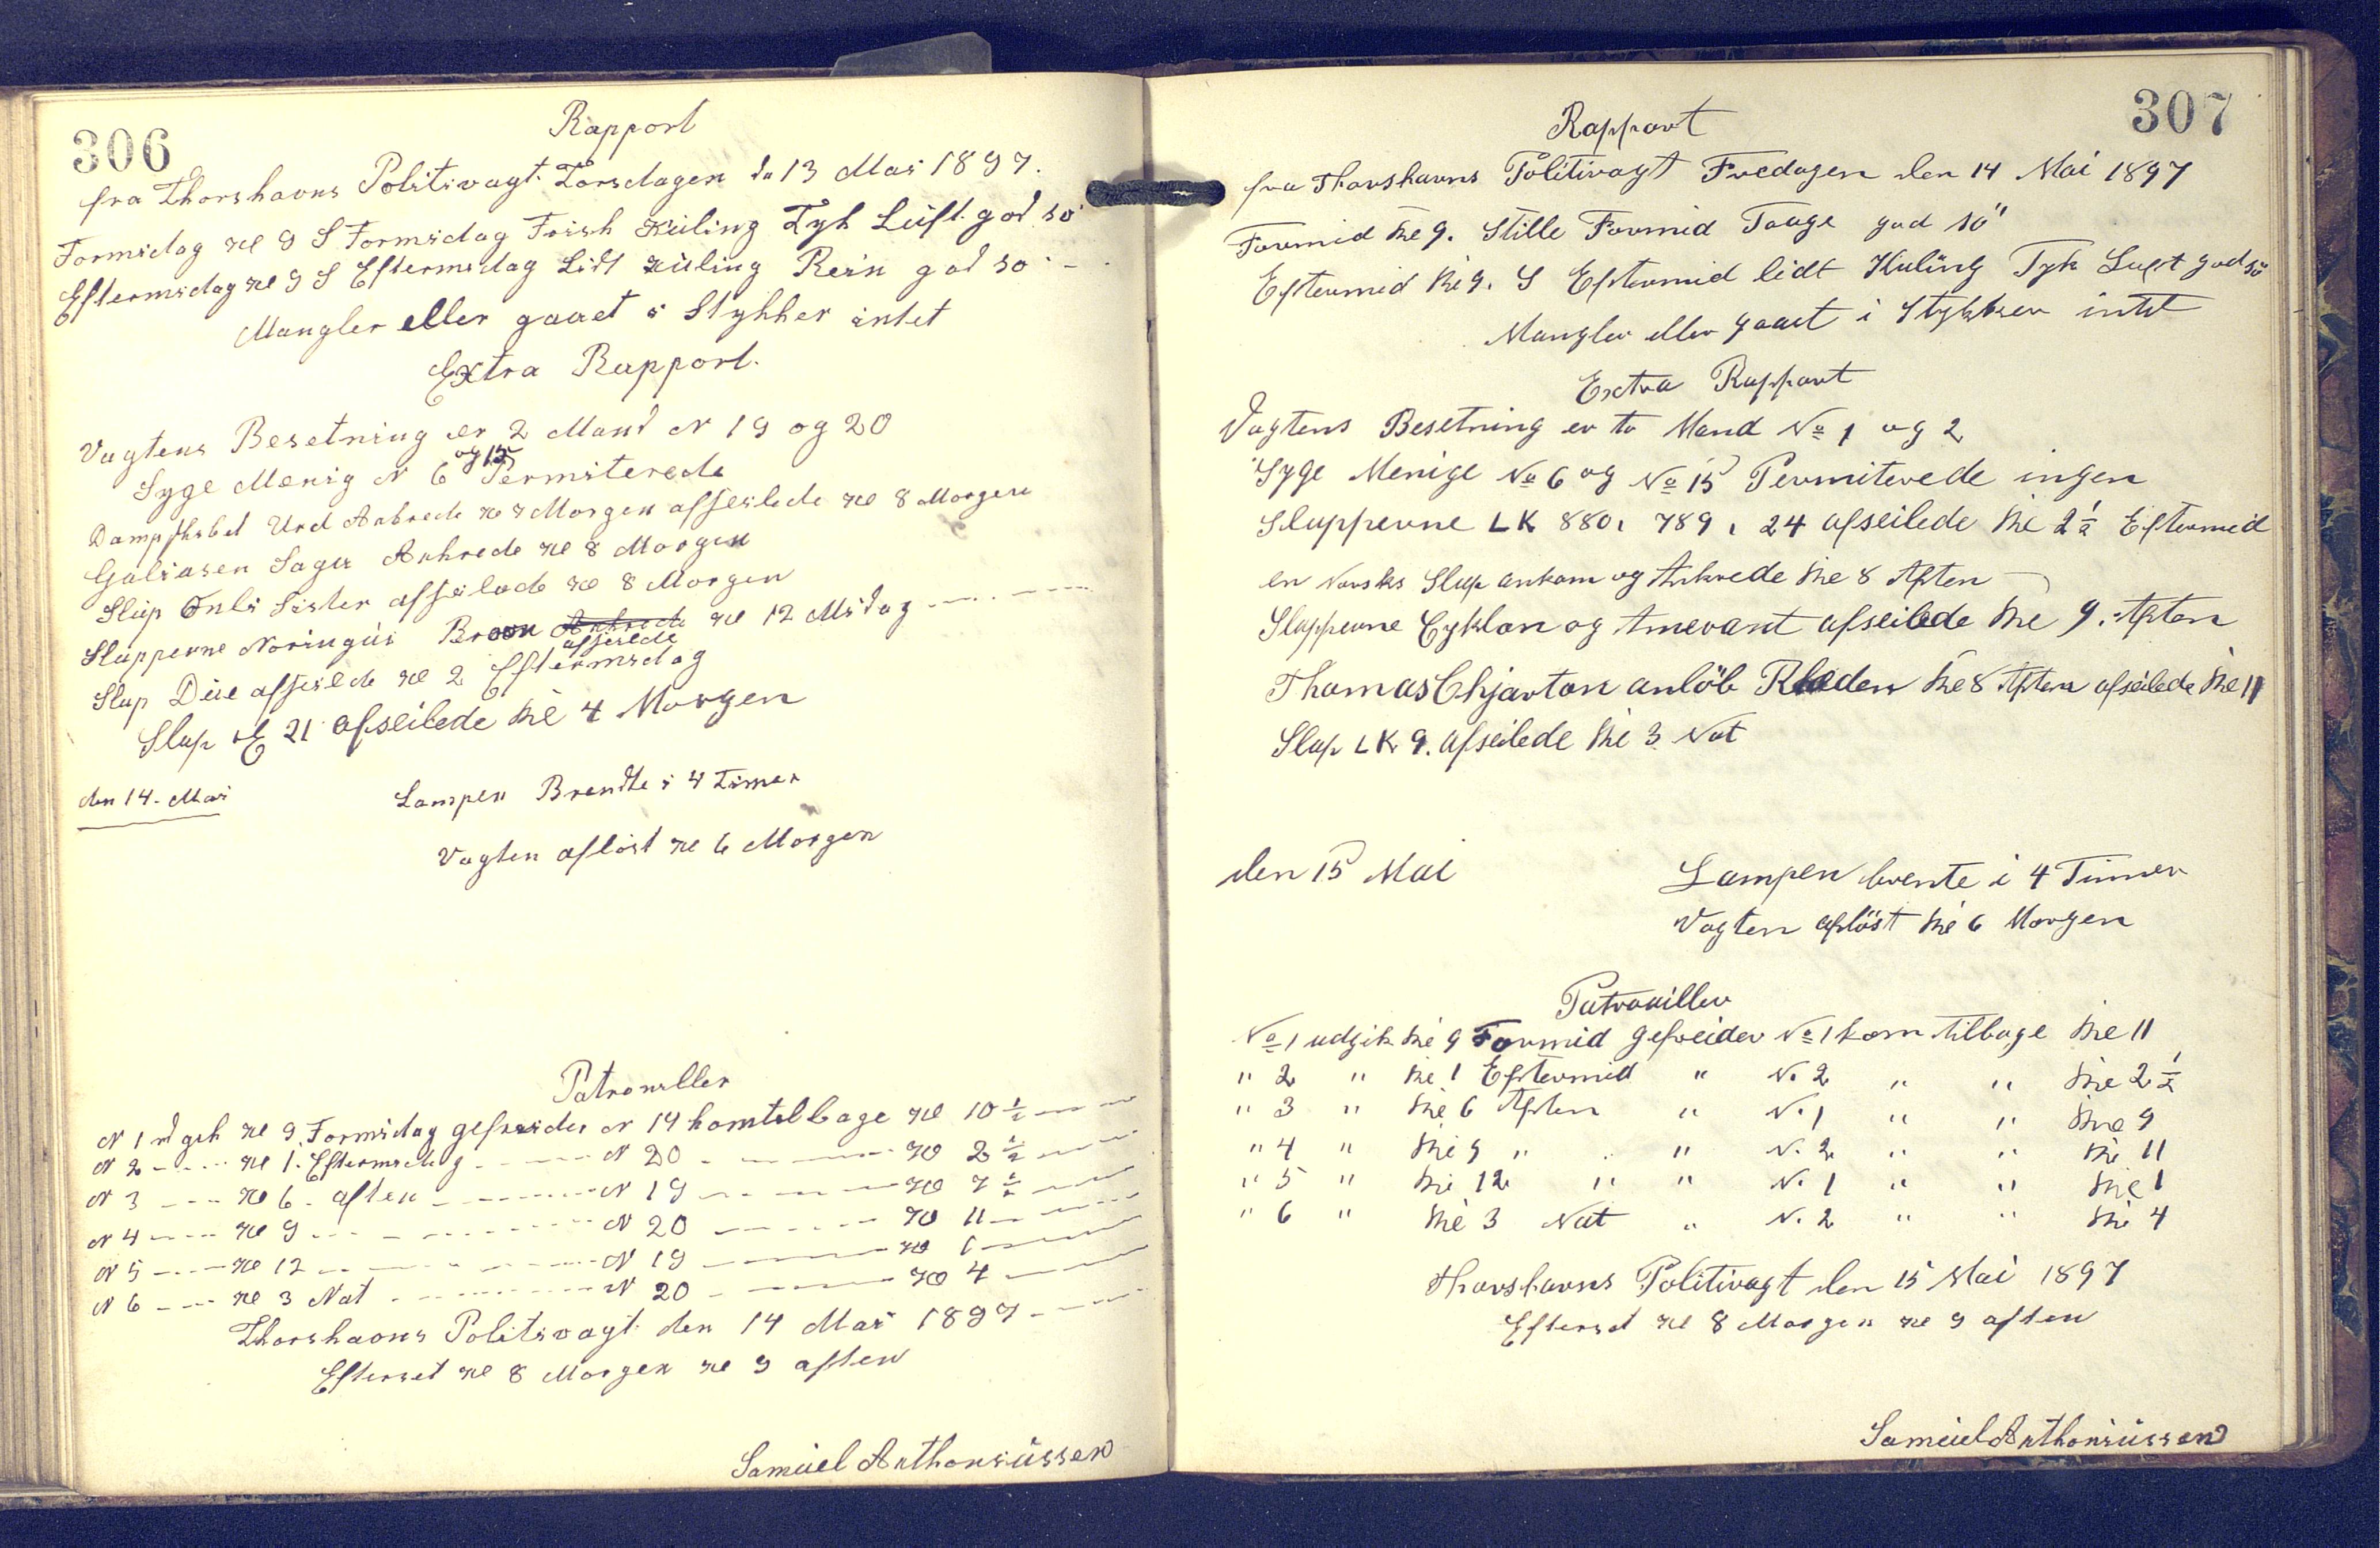 306
Rapport
fra Thorshavns Politivagt. Torsdagen d 13 Mai 1897.
Formidag Kl 9 S Formidag Frish Küling Tyk Lüft. god sö
Eftermidag Kl 9 S Eftermidag Lidt Küling Rein god sö
Mangler eller gaaet i Stykker intet
Extra Rapport.
Vagtens Besetning er 2 Mand N 19 og 20
Syge Menig N 6 og 15 Permiterede
Dampskibet Urd Ankrede Kl 7 Morgen afseilede Kl 8 Morgen
Galiasen Saga Ankrede Kl 8 Morgen
Slup Onli Sister afseilede Kl 8 Morgen
Slupperne Noringür Broon Ankrede afseilede Kl 12 Midag
Slup Düe afseilede Kl 2 Eftermidag
Slup 21 afseilede Kl 4 Morgen
den 14. Mai
Lampen Brendte i 4 Timer
Vagten aflöst Kl 6 Morgen
Patrouiller
N 1 udgik Kl 9. Formidag gefreider N 19 kom tilbage Kl 10 1/2
N 2 Kl 1. Eftermidag N 20 Kl 2 1/2
N 3 Kl 6. aften N 19 Kl 7 1/2
N 4 Kl 9 N 20 Kl 11
N 5 Kl 12 N 19 Kl 1
N 6 Kl 3 Nat N 20 Kl 4
Thorshavns Politivagt den 14 Mai 1897
Efterset Kl 8 Morgen Kl 9 aften
Samüel Anthoniüssen
307
Rapport
fra Thorshavns Politivagt Fredagen den 14 Mai 1897
Formid Kl 9. Stille Formid Taage god sö"
Eftermid Kl 9. S Eftermid lidt Kuling Tyk Luft god sö
Mangler eller gaaet i Stykker intet
Extra Rapport
Vagtens Besetning er to Mand No 1 og 2
Syge Menige No 6 og No 15 Permiterede ingen
Slupperne LK 880, 789, 24 afseilede Kl 2 1/2 Eftermid
en Norsks Slup ankom og Ankrede Kl 8 Aften
Slupperne Cyklon og Amerant afseilede Kl 9. Aften
Thomas Chjarton anlöb Rheden Kl 8 Aften afseilede Kl 11
Slup LK 9. afseilede Kl 3 Nat
den 15 Mai
Lampen brente i 4 Timer
Vagten aflöst Kl 6 Morgen
Patrouiller
No 1 udgik Kl 9 Formid gefreider No 1 kom tilbage Kl 11
" 2 " Kl 1 Eftermid " N. 2 " " Kl 2 1/2
" 3 " Kl 6 Aften " N. 1 " " Kl 9
" 4 " Kl 9 " " N. 2 " " Kl 11
" 5 " Kl 12 " " N. 1 " " Kl 1
" 6 " Kl 3 Nat " N. 2 " " Kl 4
Thorshavns Politivagt den 15 Mai 1897
Efterset Kl 8 Morgen Kl 9 aften
Samüel Anthoniüssen